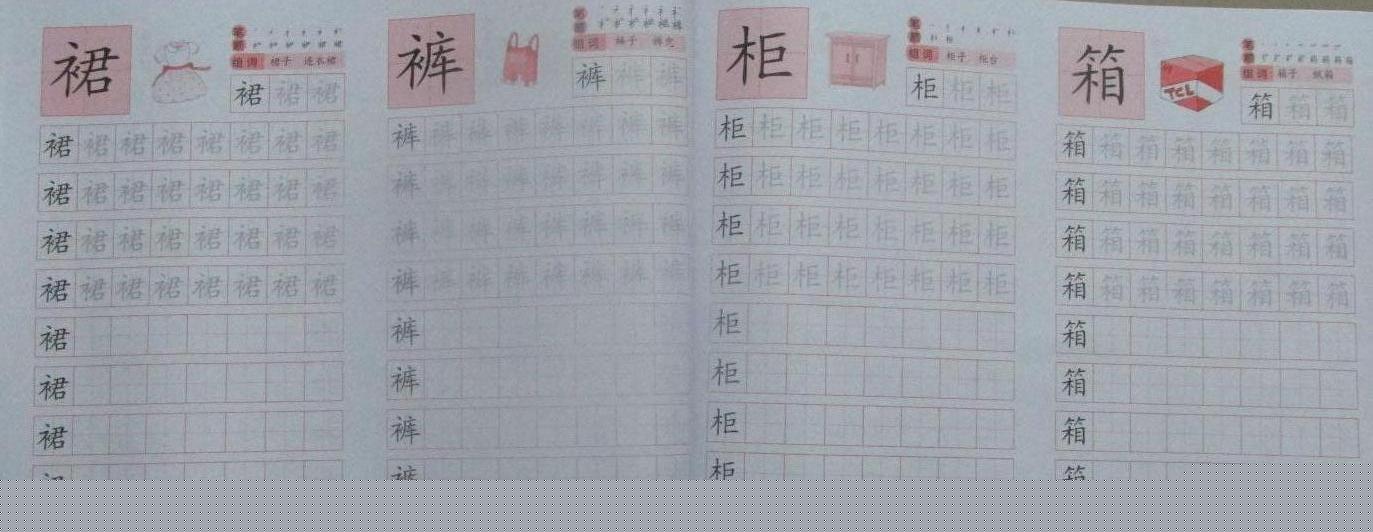 裙
笔顺
组词 裙子 连衣裙
裙裙裙
裙裙裙裙裙裙裙裙
裙裙裙裙裙裙裙裙
裙裙裙裙裙裙裙裙
裙裙裙裙裙裙裙裙
裙
裙
裙
裤
笔顺
组词 裤子
裤裤裤
裤裤裤裤裤裤裤裤
裤裤裤裤裤裤裤裤
裤裤裤裤裤裤裤裤
裤裤裤裤裤裤裤裤
裤
裤
裤
裤
柜
笔顺
组词 柜子 柜台
柜柜柜
柜柜柜柜柜柜柜柜
柜柜柜柜柜柜柜柜
柜柜柜柜柜柜柜柜
柜柜柜柜柜柜柜柜
柜
柜
柜
柜
箱
TCL
笔顺
组词 箱子 纸箱
箱箱箱
箱箱箱箱箱箱箱箱
箱箱箱箱箱箱箱箱
箱箱箱箱箱箱箱箱
箱箱箱箱箱箱箱箱
箱
箱
箱